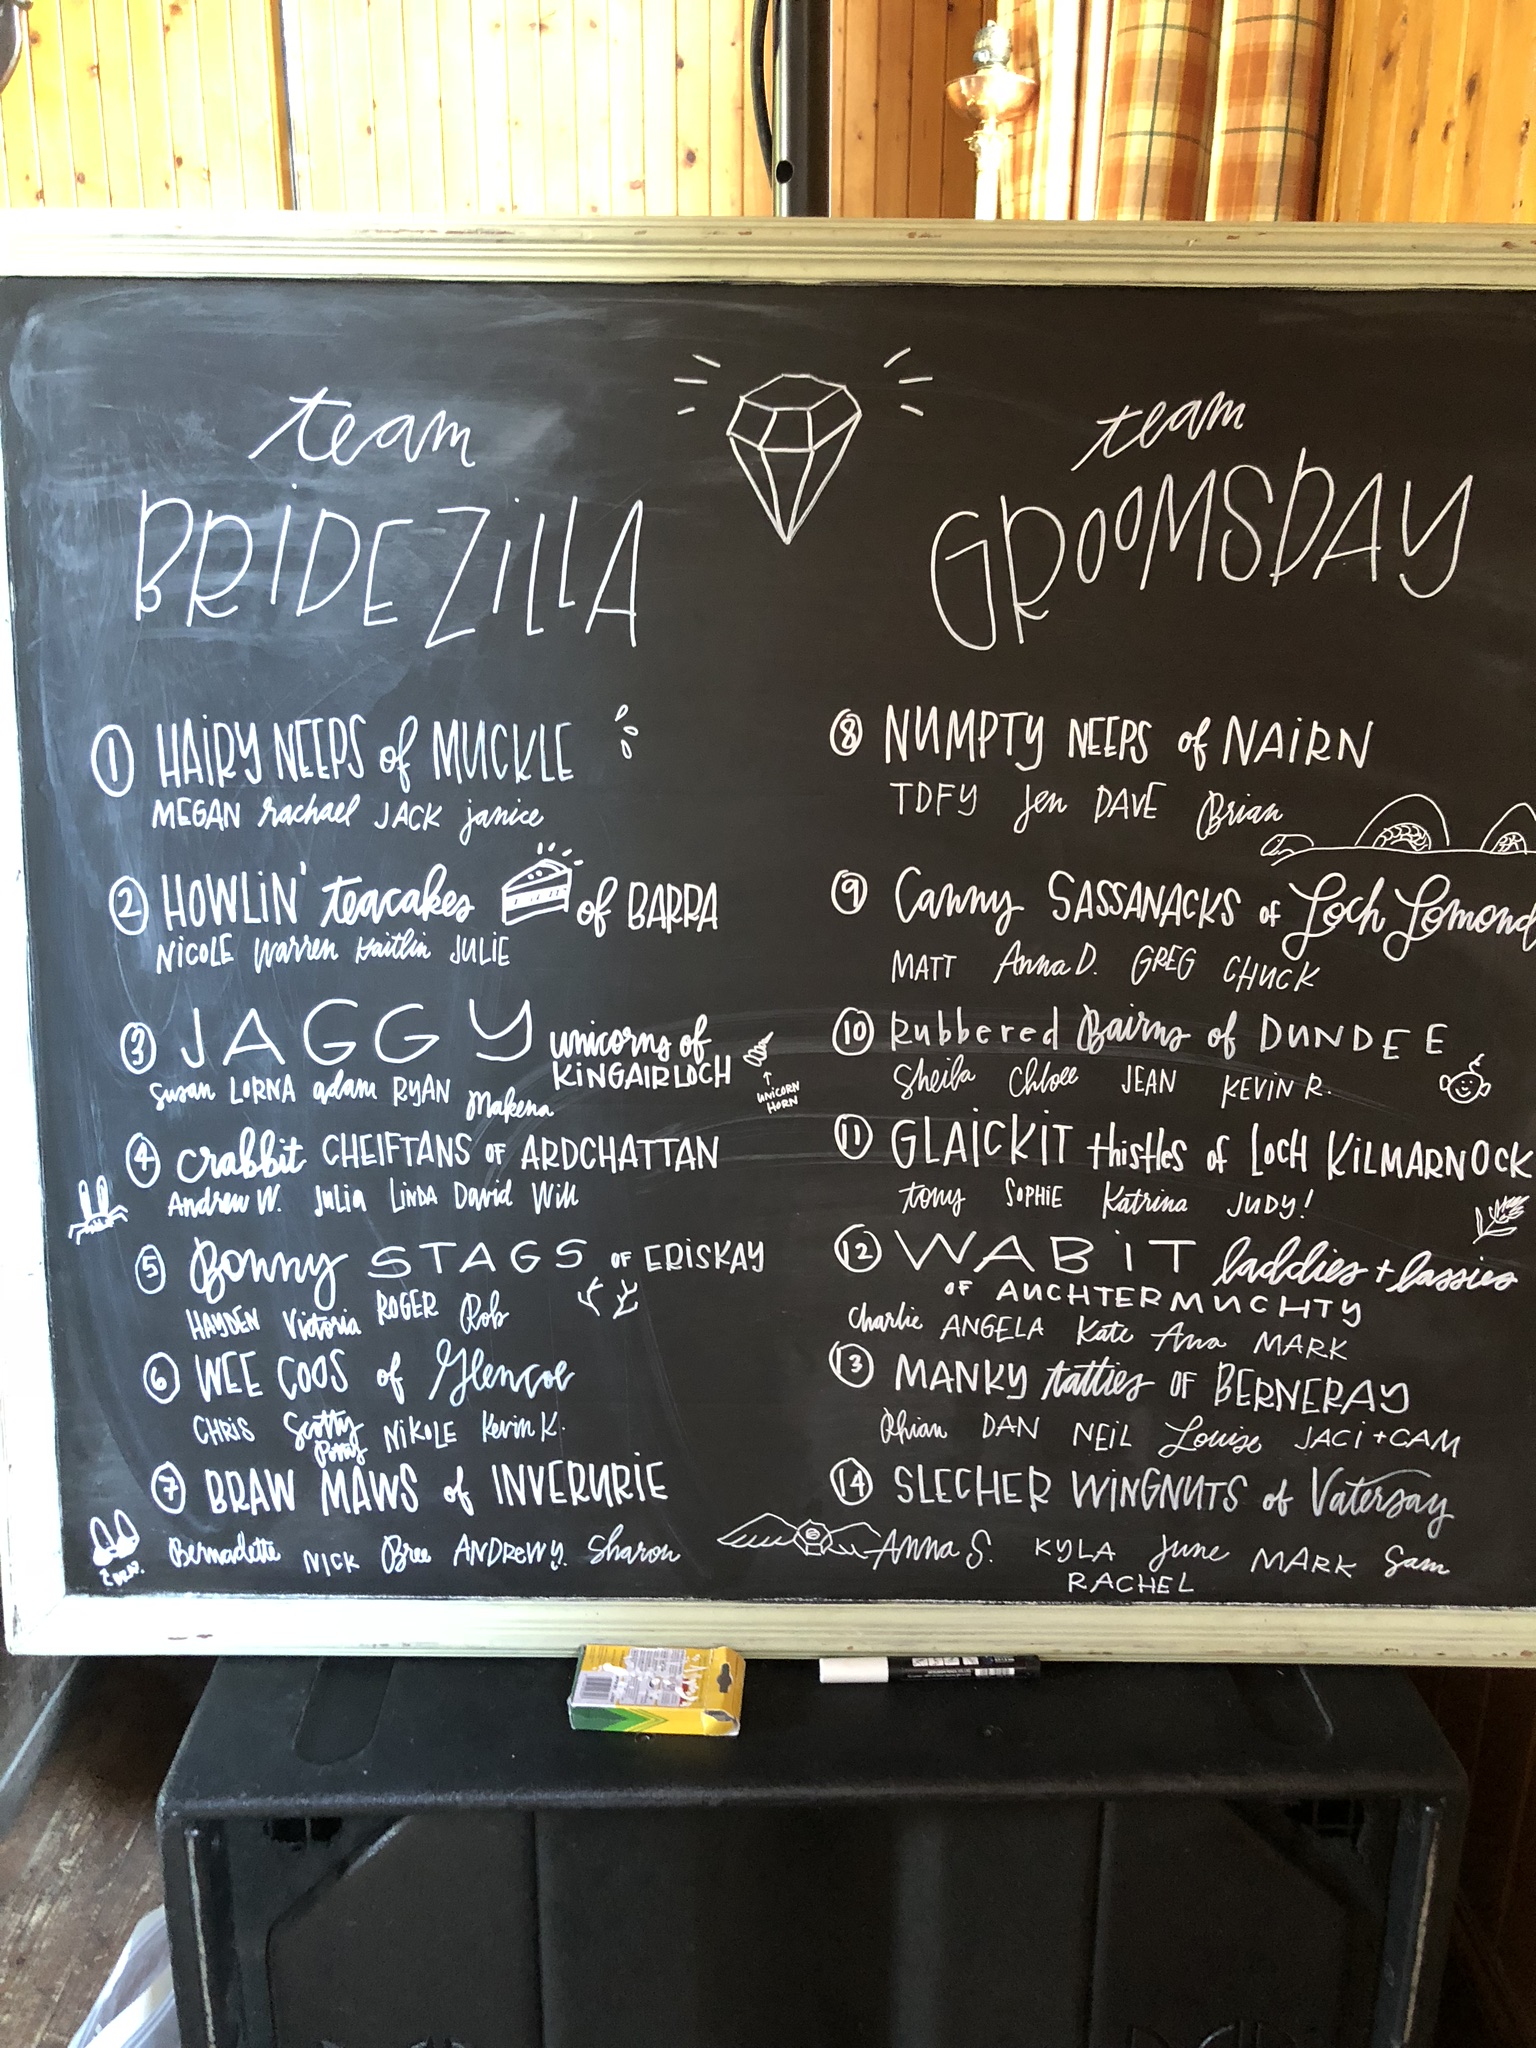 team
BRIDEZILLA
1 HAIRY NEEPS of MUCKLE
MEGAN rachael JACK janice
2 HOWLIN' teacakes of BARRA
NICOLE Warren Kaitlin JULIE
3 JAGGY unicorns of
KINGAIRLOCH
UNICORN
HORN
Susan LORNA adam RYAN Makena
4 crabbit CHEIFTANS OF ARDCHATTAN
Andrew W. Julia LINDA David Will
5 Bonny STAGS OF ERISKAY
HAYDEN Victoria ROGER Rob
6 WEE COOS of Glencoe
CHRIS Scotty NIKOLE Kevin K.
7 BRAW MAWS of INVERURIE
Bernadette NICK Bree ANDREW Y. Sharon
team
GROOMSDAY
8 NUMPTY NEEPS of NAIRN
TDFY Jen DAVE Brian
9 Canny SASSANACKS OF Loch Lomond
MATT Anna D. GREG CHUCK
10 Rubbered Bairns of DUNDEE
Sheila Chloee JEAN KEVIN R.
11 GLAICKIT thistles of LOCH KILMARNOCK
tony SOPHIE Katrina JUDY!
12 WABIT laddies + lassies
OF AUCHTERMUCHTY
Charlie ANGELA Kate Ana MARK
13 MANKY tatties OF BERNERAY
Rhian DAN NEIL Louise JACI + CAM
14 SLECHER WINGNUTS of Vatersay
Anna S. KYLA June MARK Sam
RACHEL